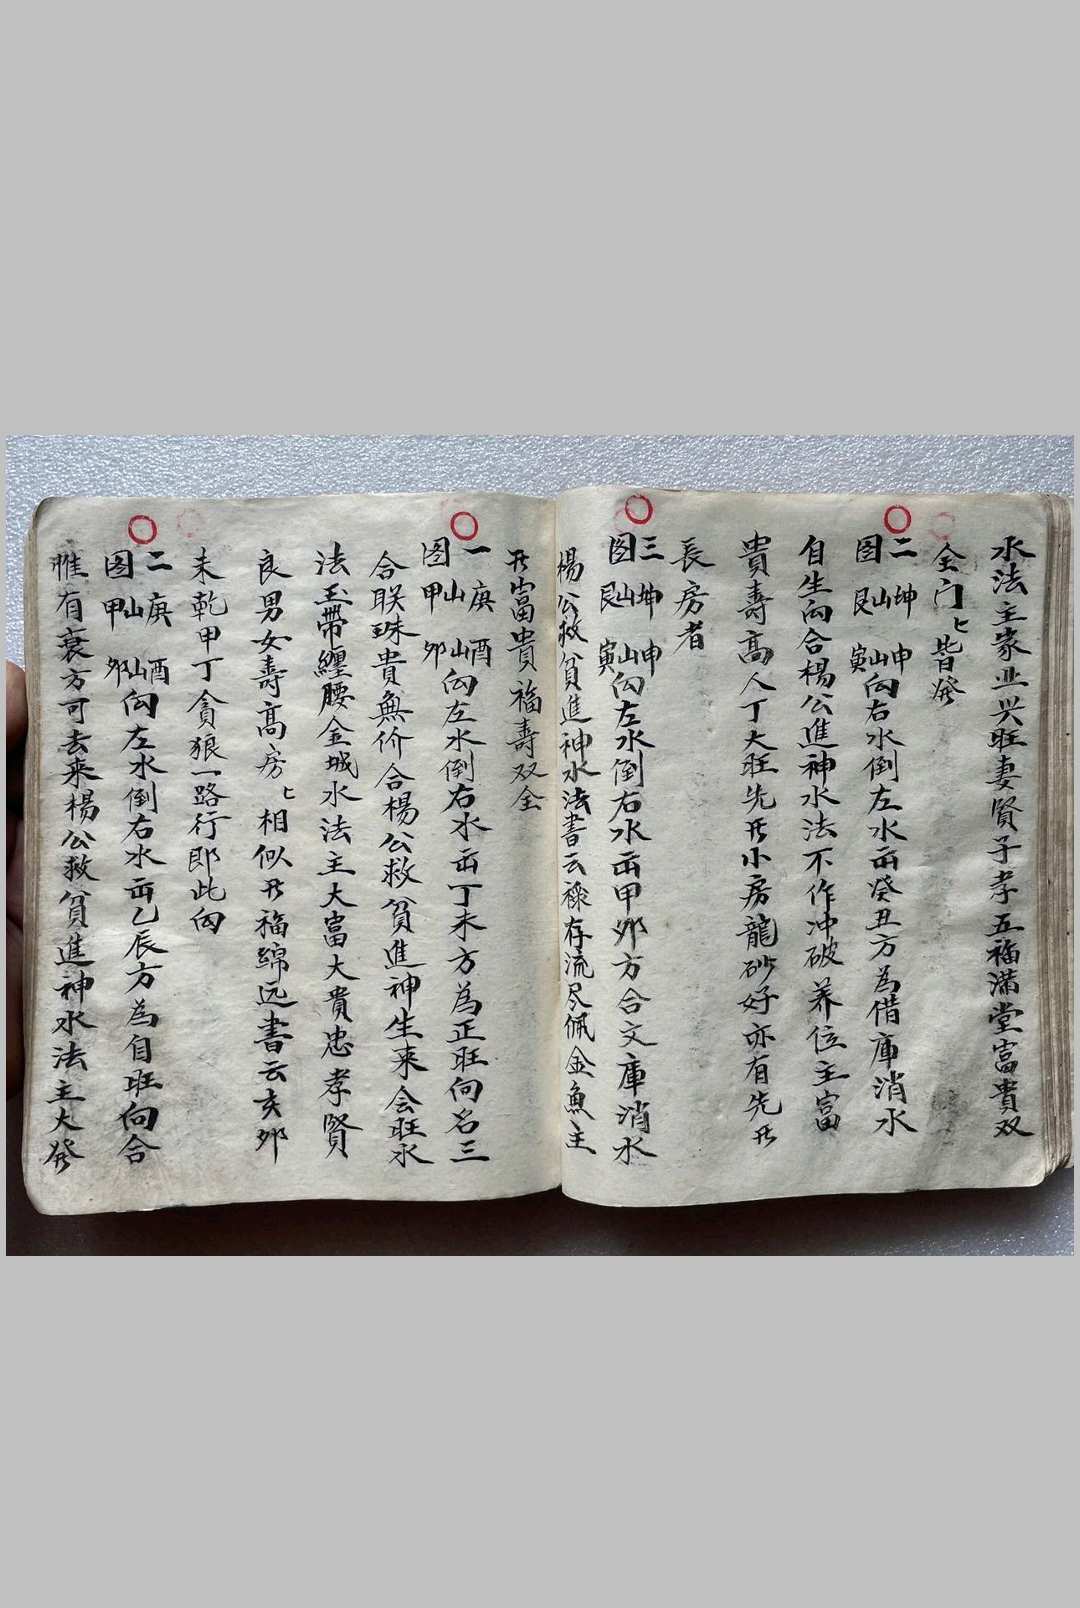 水法主家业兴旺妻賢子孝五福满堂富貴双
全门〻皆發
二圖 坤山艮 申山寅 向右水倒左水出癸丑方為借庫消水
自生向合楊公進神水法不作冲破养位主富
貴壽高人丁大旺先發小房龍砂好亦有先發
長房者
三圖 坤山艮 申山寅 向左水倒右水出甲卯方合文庫消水
楊公救貧進神水法書云祿存流尽佩金魚主
發富貴福壽双全
一圖 庚山甲 酉山卯 向左水倒右水出丁未方為正旺向名三
合联珠貴無价合楊公救貧進神生来会旺水
法玉帶纏腰金城水法主大富大貴忠孝賢
良男女壽高房〻相似發福綿远書云亥卯
未乾甲丁貪狼一路行即此向
二圖 庚山甲 酉山卯 向左水倒右水出乙辰方為自旺向合
惟有衰方可去来楊公救貧進神水法主大發